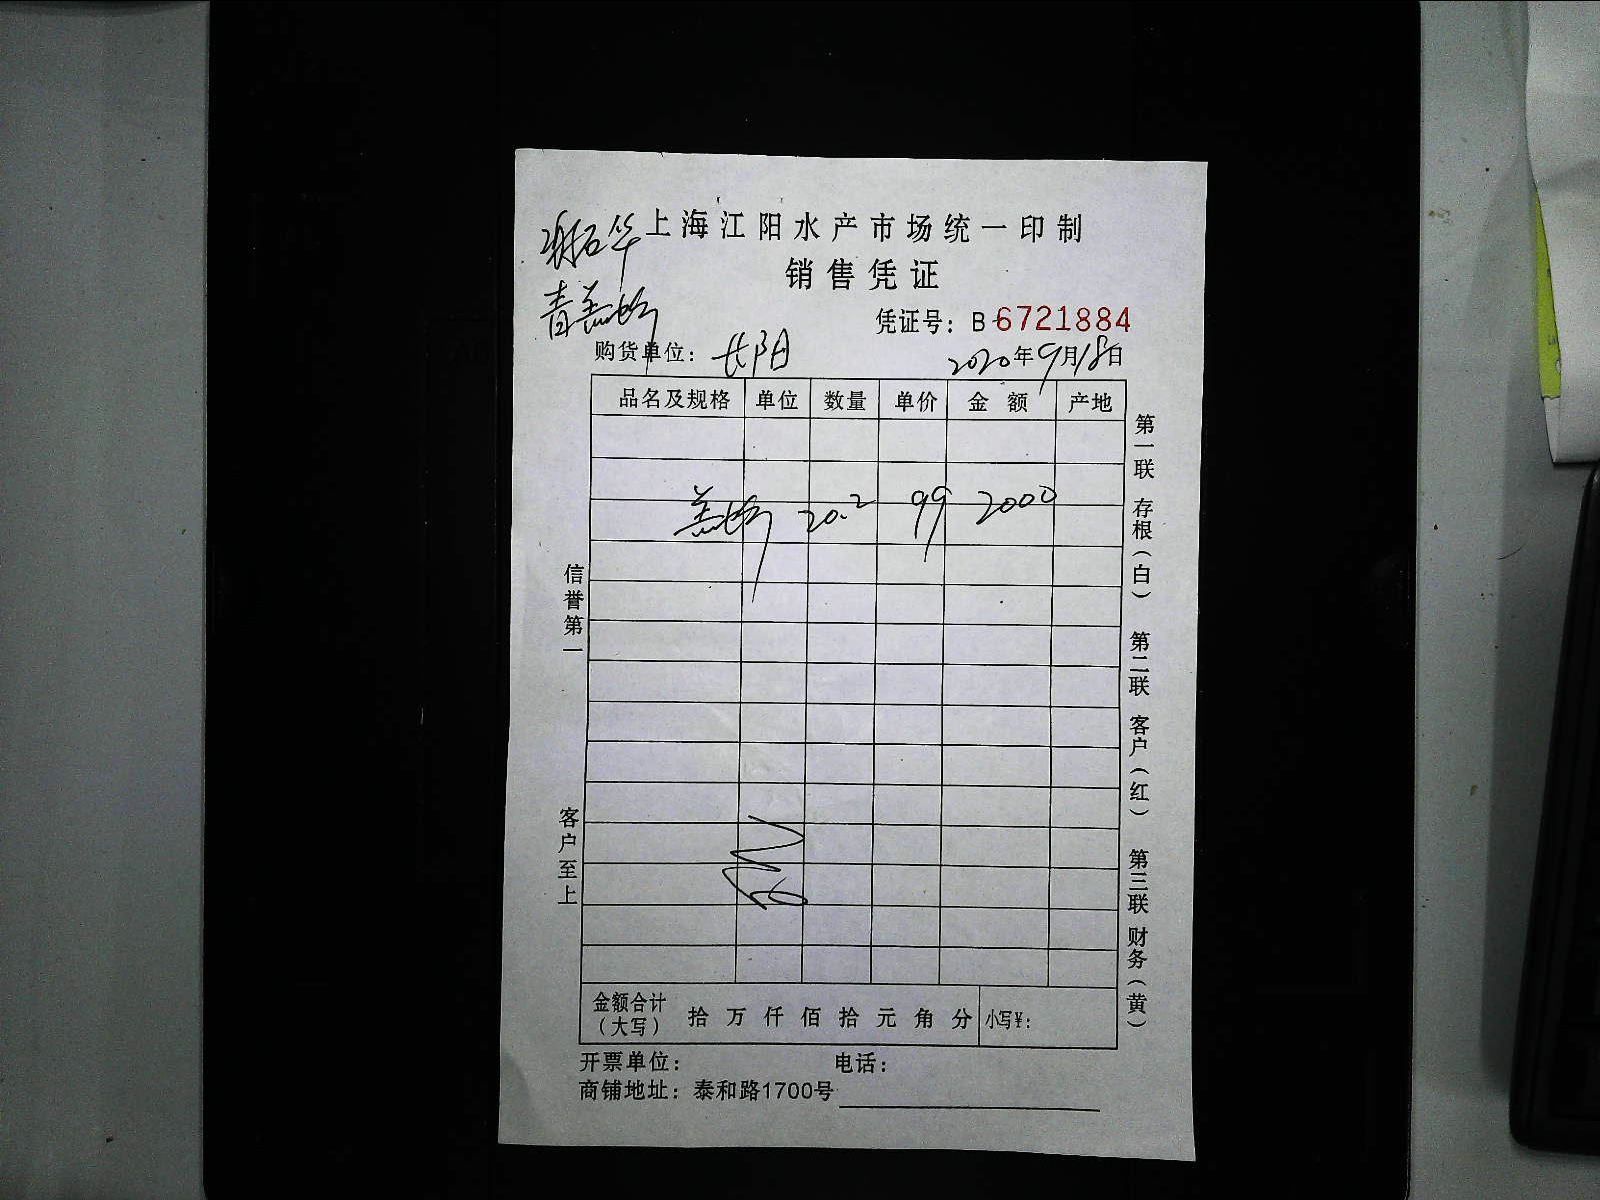 上海江阳水产市场统一印制
销售凭证
凭证号：B-6721884
购货单位：长阳
2020年9月18日
品名及规格 单位 数量 单价 金额 产地
20.2 99 2000
信誉第一
客户至上
第一联 存根（白） 第二联 客户（红） 第三联 财务（黄）
金额合计（大写） 拾 万 仟 佰 拾 元 角 分 小写¥：
开票单位： 电话：
商铺地址：泰和路1700号